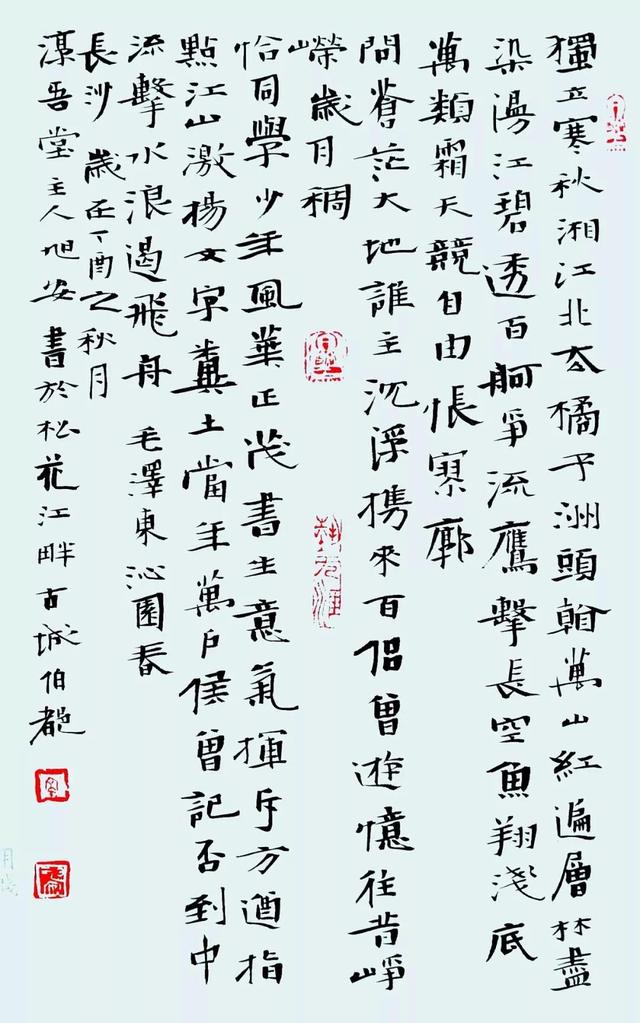 獨立寒秋湘江北去橘子洲頭看萬山紅遍層林盡
染漫江碧透百舸爭流鷹擊長空魚翔淺底
萬類霜天競自由悵寥廓
問蒼茫大地誰主沉浮携來百侶曾遊憶往昔崢
嶸歲月稠
恰同學少年風華正茂書生意氣揮斥方遒指
點江山激揚文字糞土當年萬户侯曾記否到中
流擊水浪遏飛舟 毛澤東沁園春
長沙 歲在丁酉之秋月
吾堂主人旭安書於松花江畔古城伯都